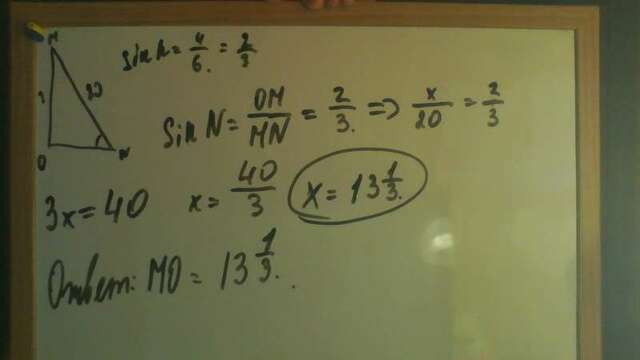 M
sin A = 4/6. = 2/3
20
?
O
N
sin N = OM/MN = 2/3. => x/20 = 2/3
3x = 40 x = 40/3 x = 13 1/3.
Ответ: MO = 13 1/3.